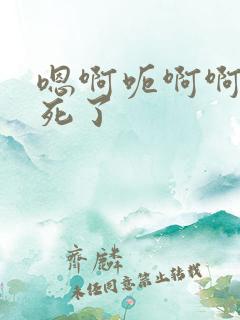 嗯啊呃啊啊
死了
齊麟
未经同意禁止转载